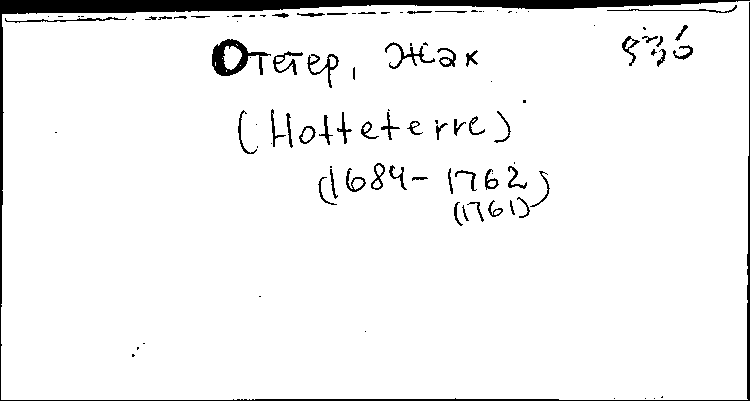 Отетер, Жак
(Hotteterre)
(1684-1762)
(1761)